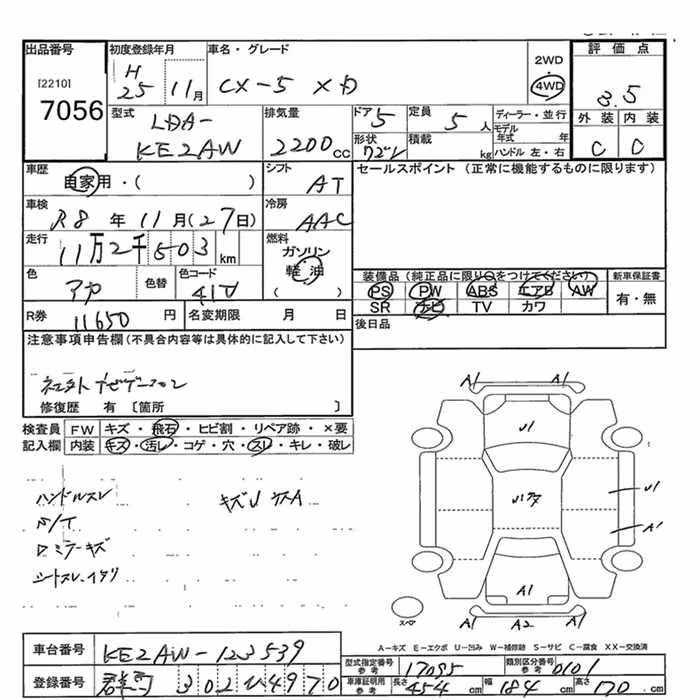 出品番号 初度登録年月 車名・グレード 評価点
[2210] 7056 H25 11月 CX-5 XD 2WD 4WD 3.5
型式 排気量 ドア 定員 ディーラー・並行 外装 内装
LDA-KE2AW 2200cc 5 5人 モデル年式 年 C C
形状 ワゴン 積載 kg ハンドル 左・右
車歴 シフト セールスポイント (正常に機能するものに限ります)
自家用・( ) AT
車検 冷房
R8年11月(27日) AAC
走行 燃料
11万2千503km ガソリン
軽油
( )
色 色替 色コード 装備品(純正品に限り○をつけてください) 新車保証書
アカ 41V PS PW ABS エアB AW 有・無
SR ナビ TV カワ
R券 11650円 名変期限 月 日 後日品
注意事項申告欄(不具合内容等は具体的に記入して下さい)
修復歴 有 〔箇所 〕
検査員 FW キズ・飛石・ヒビ割・リペア跡・×要
記入欄 内装 キズ・汚レ・コゲ・穴・スレ・キレ・破レ
A1 A1
U1
ハンドルスレ キズU
S/T
U1
A1
A1
スペア
A1 A2 A1
A-キズ E-エクボ U-凹み W-補修跡 S-サビ C-腐食 XX-交換済
車台番号 KE2AW-123539
型式指定番号 参考 17095 類別区分番号 参考 0101
登録番号 302 4970
車庫証明用 参考 長さ 454cm 幅 184cm 高さ 170cm